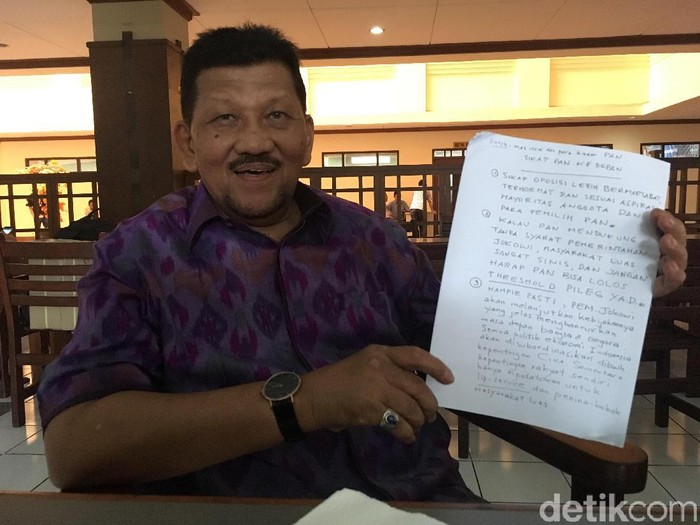 PAN
SIKAP PAN KE DEPAN
① SIKAP OPOSISI LEBIH BERMARTABAT,
TERHORMAT DAN SESUAI ASPIRASI
MAYORITAS ANGGOTA DAN
PARA PEMILIH PAN.
② KALAU PAN MENDUKUNG
TANPA SYARAT PEMERINTAHAN
JOKOWI, MASYARAKAT LUAS
SANGAT SINIS DAN JANGAN
HARAP PAN BISA LOLOS
THRESHOLD PILEG Y.A.D.
③ HAMPIR PASTI, PEM. JOKOWI
akan melanjutkan kebijakannya
yang jelas menghancurkan
masa depan bangsa & negara
Semua politik ekonomi Indonesia
akan disubordinasikan dibawah
kepentingan Cina. Sementara
kepentingan rakyat sendiri
hanya dipedulikan untuk
lip-service dan
masyarakat luas
detikcom